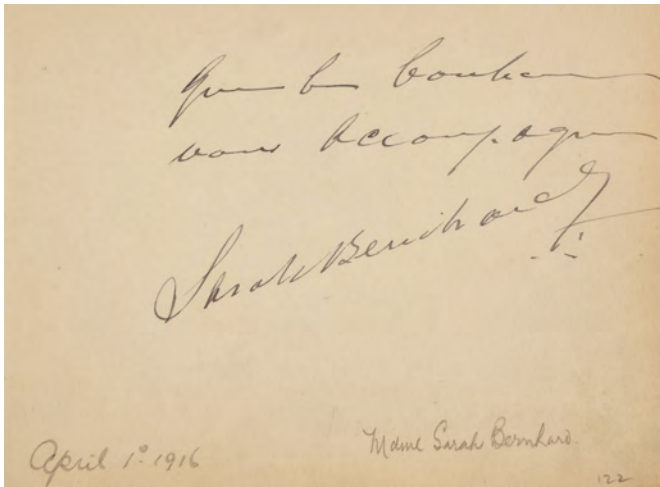 Que le bonheur
vous accompagne
Sarah Bernhardt
April 1º 1916
Mdme Sarah Bernhard.
122